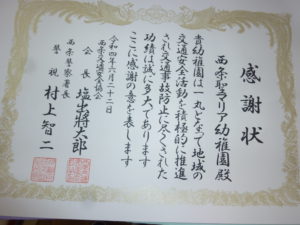 感謝状
西条聖マリア幼稚園殿
貴幼稚園は一丸となって地域の
交通安全活動を積極的に推進
され交通事故防止に尽くされた
功績は誠に多大であります
ここに感謝の意を表します
令和四年十月二十二日
西条交通安全協会
会長 塩出將太郎
西条警察署長
警視 村上智二